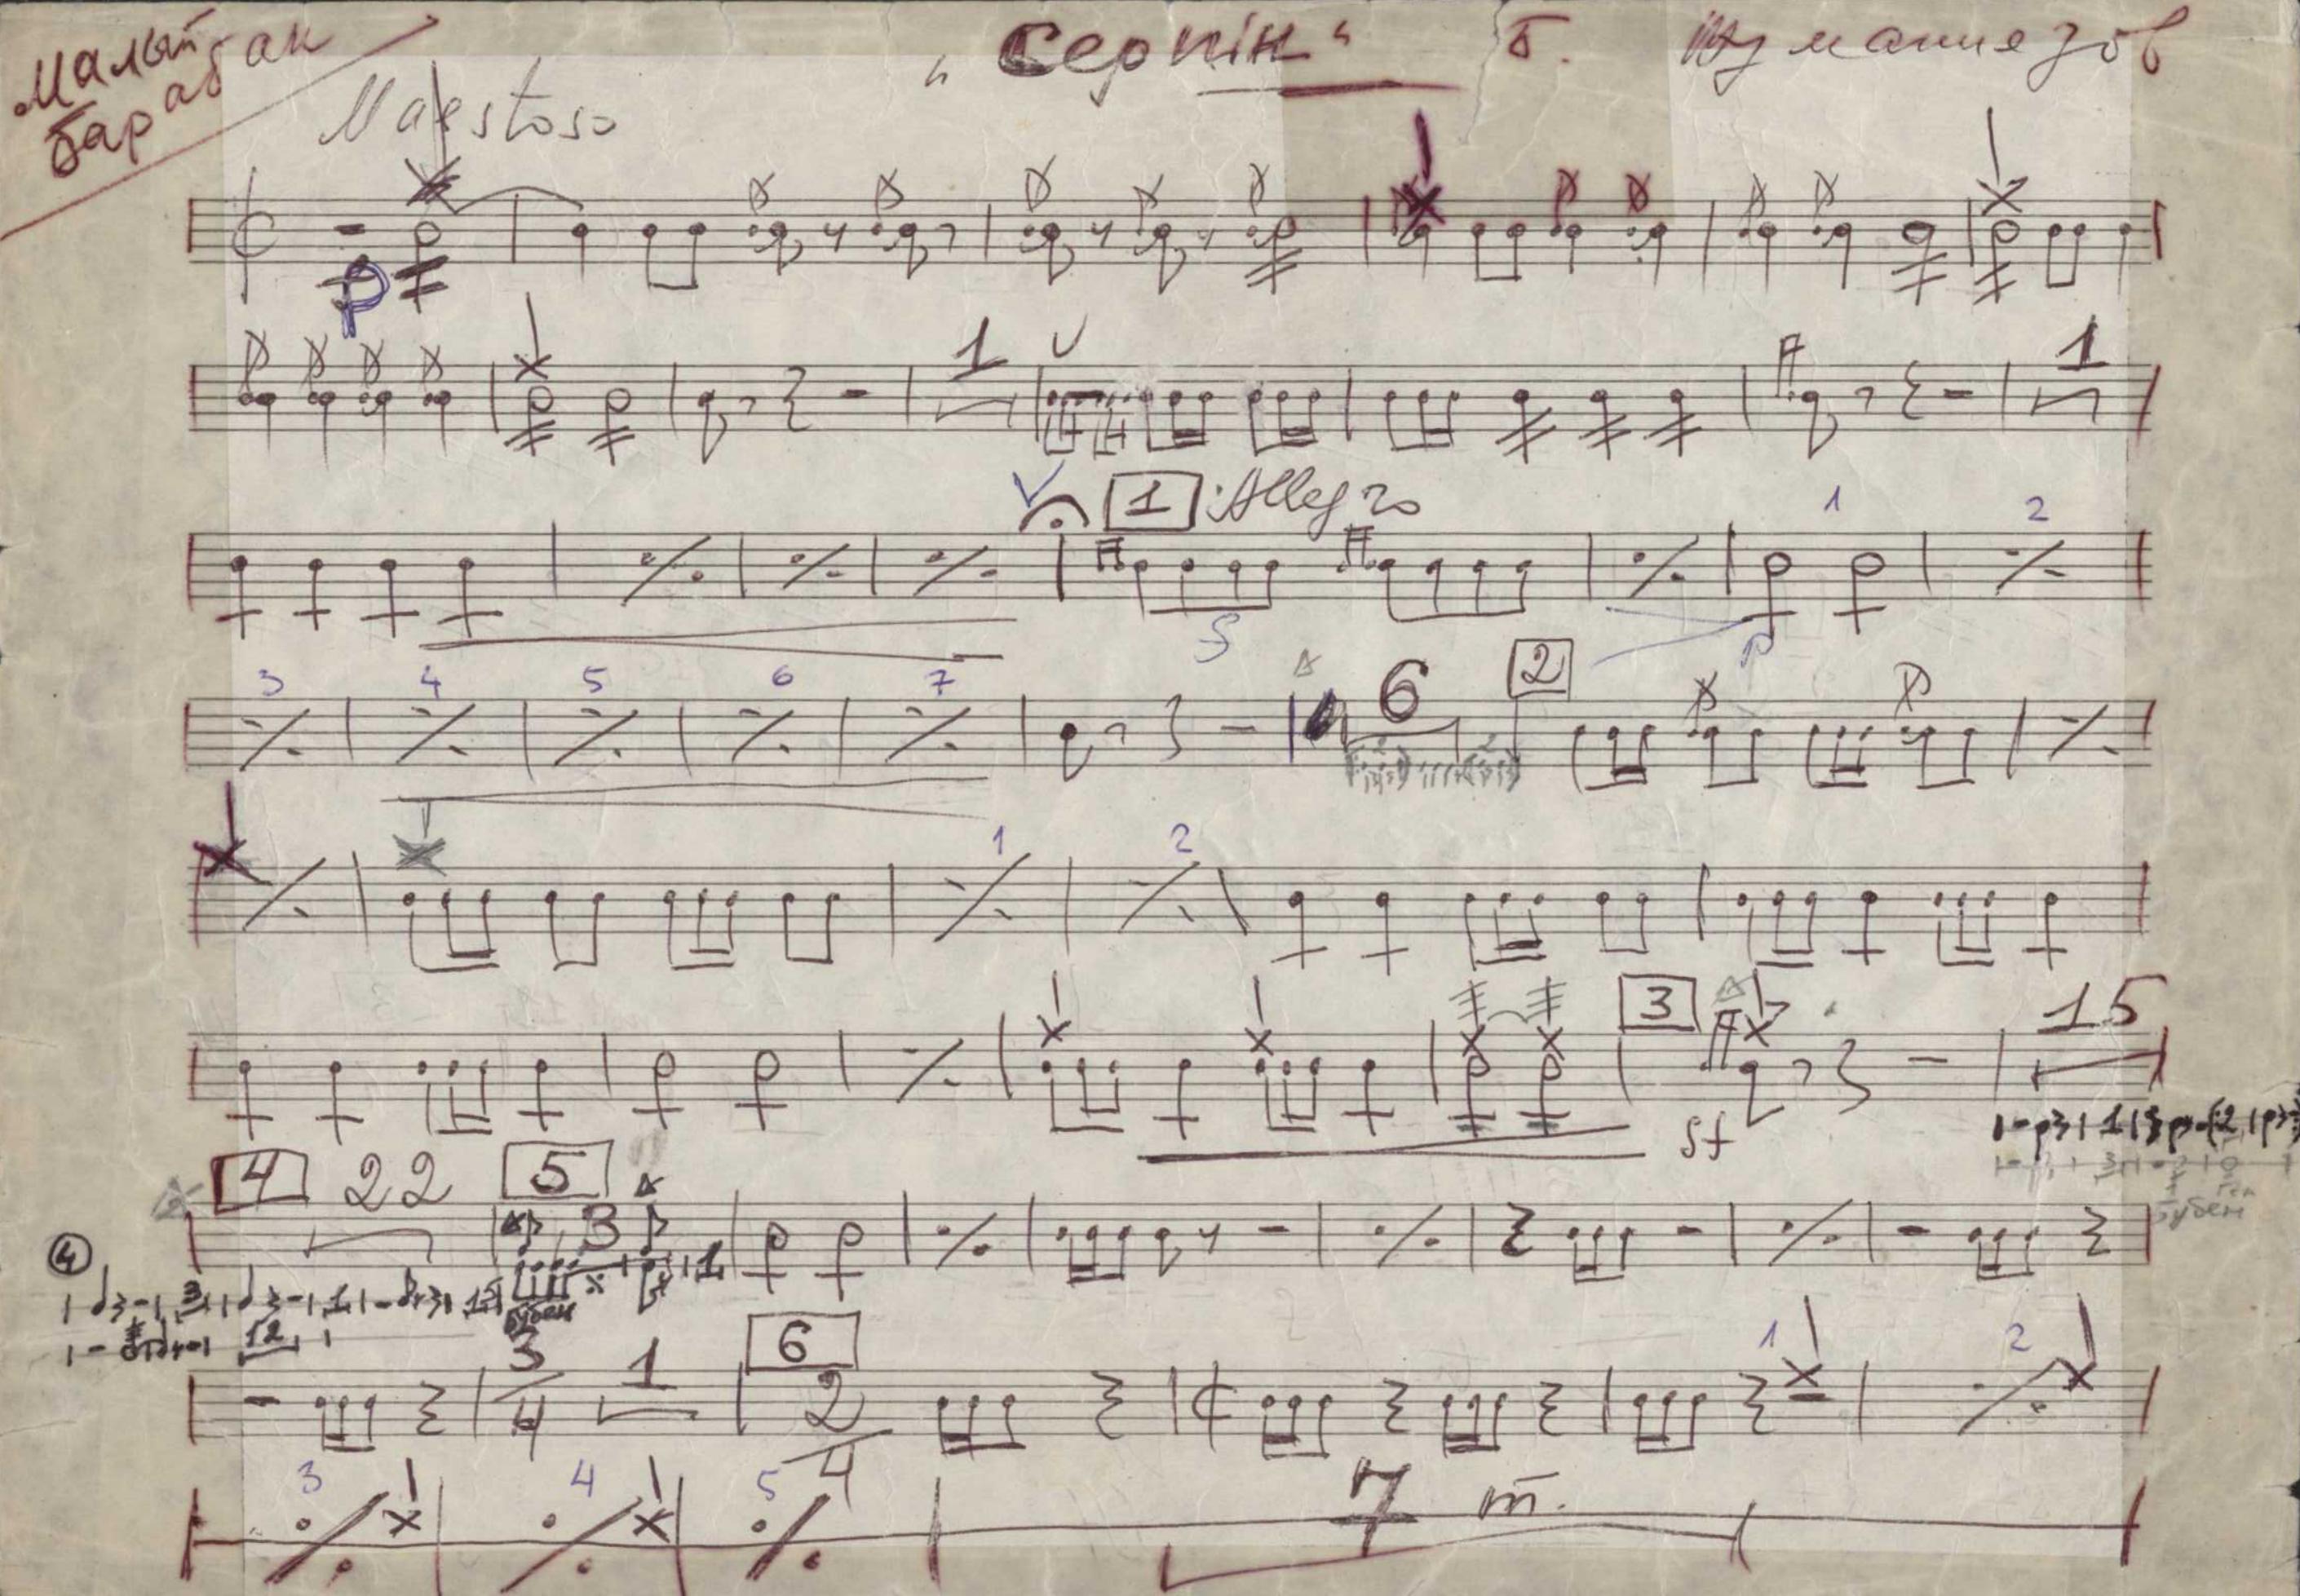 Малый
барабан
„Серпін“ Б. Жуманиязов
Maestoso
p
1
1
1 Allegro
1 2
f p
3 4 5 6 7 6 2
1 2
3 15
sf
4 22 5
3
1
бубен
бубен
4
12
3/4 1 6 2/4
1 2
3 4 5 7 т.